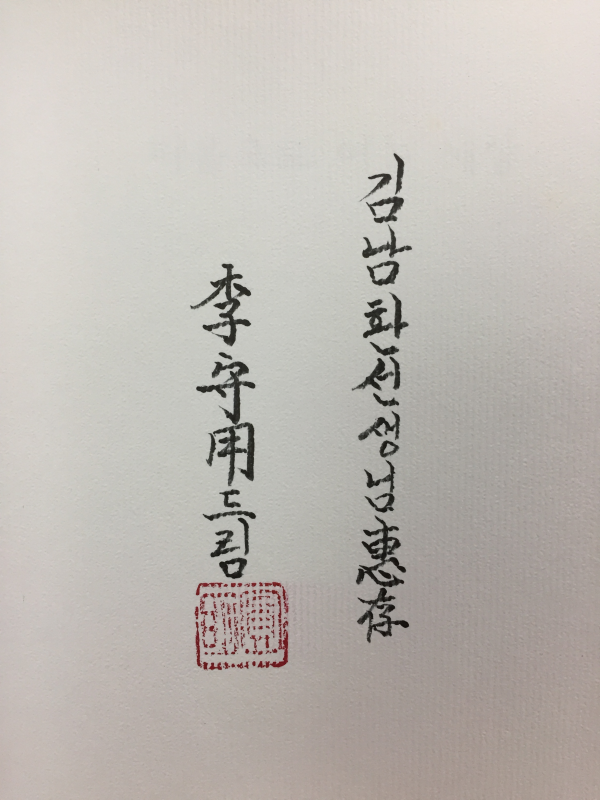 김남환선생님惠存
李守用드림